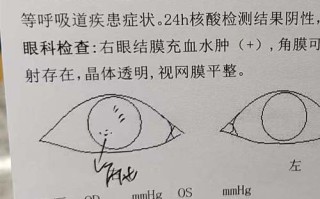 等呼吸道疾患症状。24h核酸检测结果阴性，
眼科检查：右眼结膜充血水肿（+），角膜可
射存在，晶体透明，视网膜平整。
左
OD mmHg OS mmHg